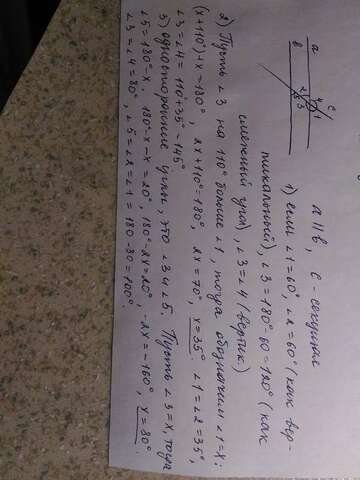 a
b
c
2 4
3 1
5
a || b, c - секущие
1) если ∠1=60°, ∠2=60° (как вер-
тикальный), ∠3=180°-60=120° (как
смежный угол), ∠3=∠4 (вертик)
2) Пусть ∠3 на 110° больше ∠1, тогда обозначим ∠1=x:
(x+110°)+x=180°, 2x+110°=180°, 2x=70°, x=35° ∠1=∠2=35°,
∠3=∠4=110°+35°=145°
3) односторонние углы, это ∠3 и ∠5. Пусть ∠3=x, тогда
∠5=180°-x. 180°-x-x=20° 180°-2x=20° -2x=-160°, x=80°.
∠3=∠4=80°, ∠5=∠2=∠1=180-80=100°.